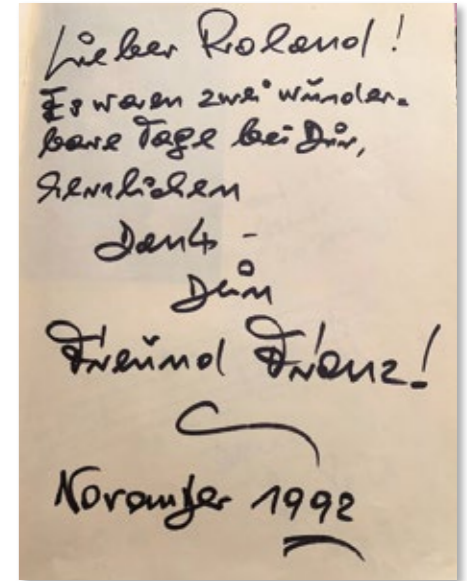 Lieber Roland!
Es waren zwei wunder-
bare Tage bei Dir,
herzlichen
Dank -
Dein
Freund Franz!
November 1992